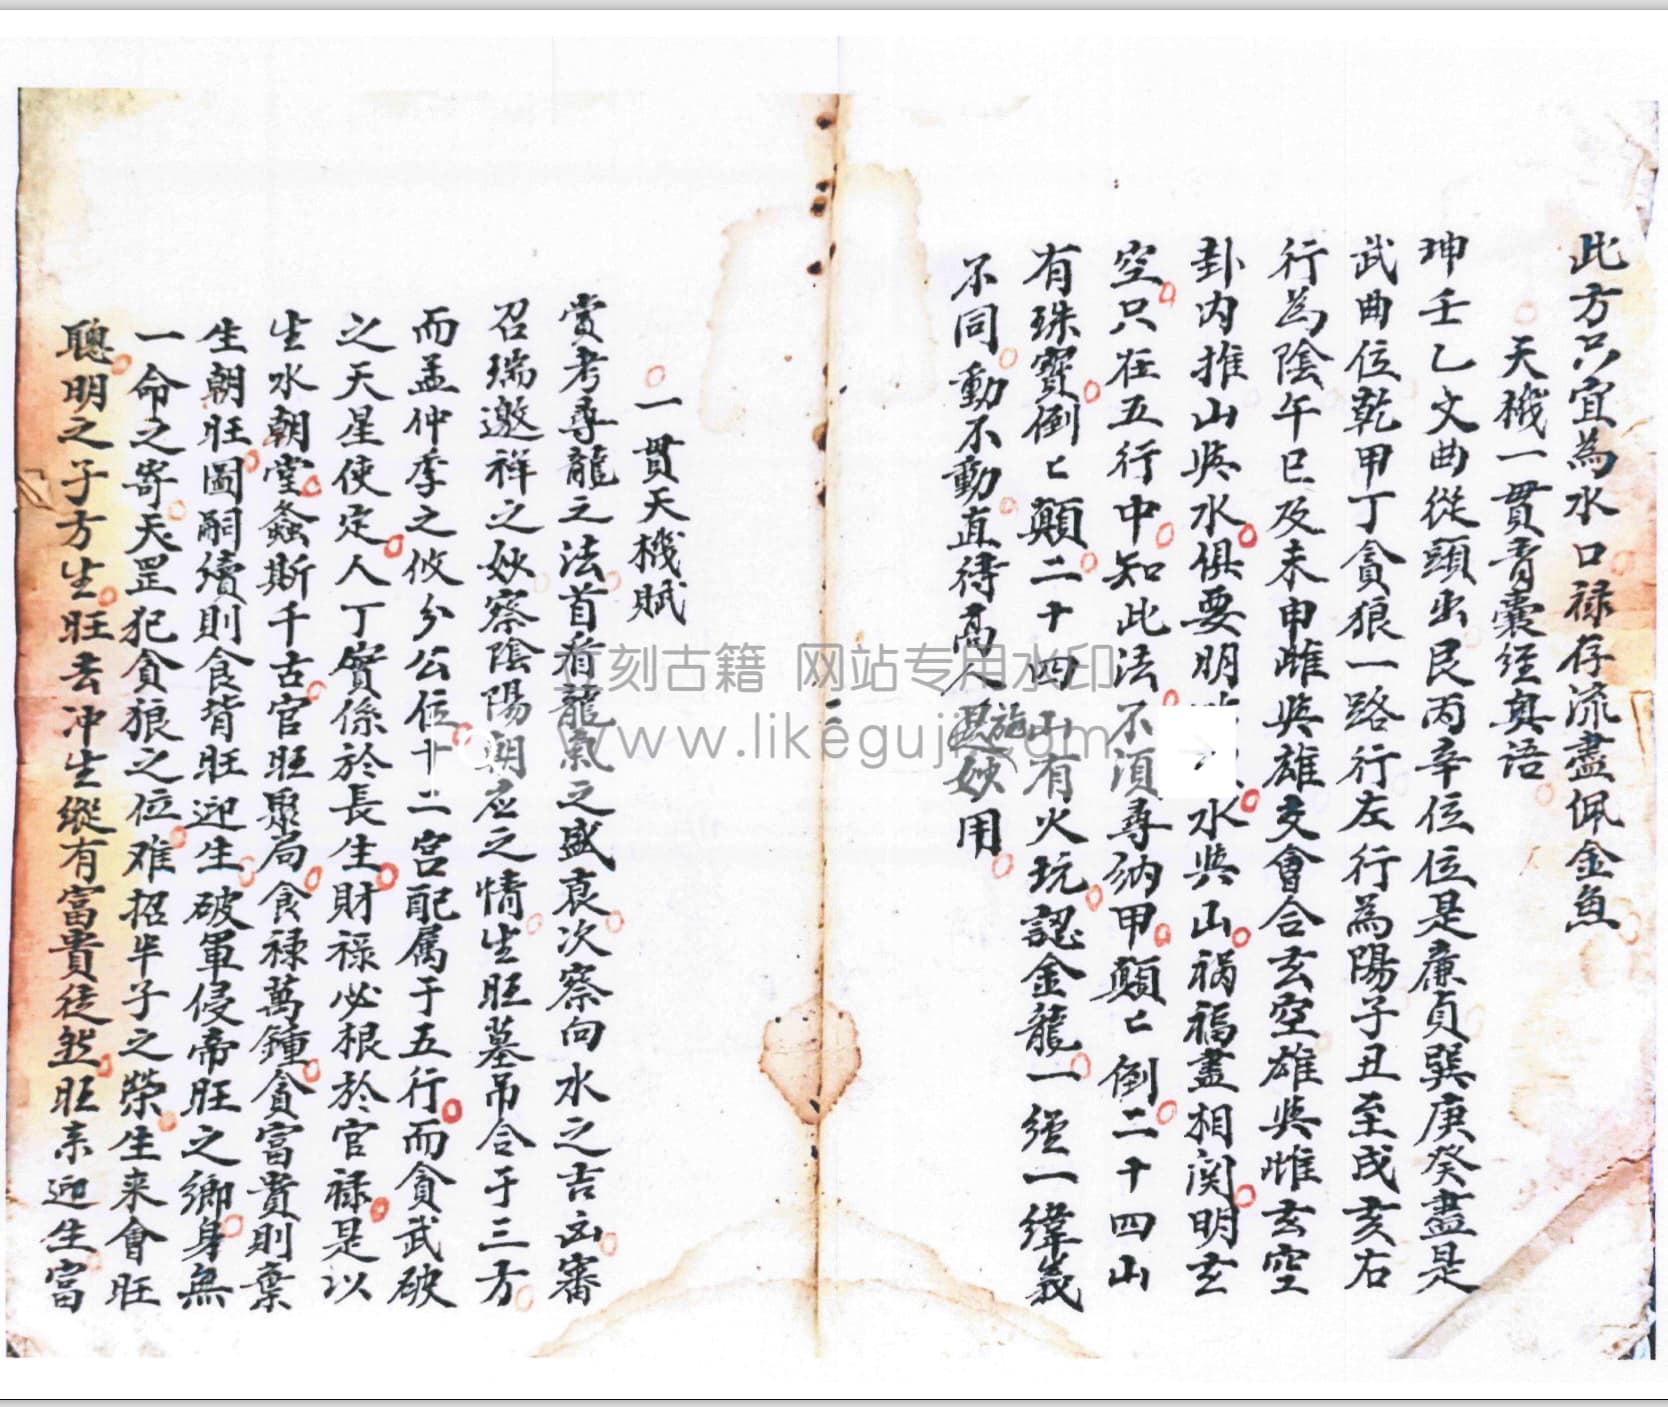 此方只宜為水口禄存流盡佩金魚
天機一貫青囊経奥语
珅壬乙文曲從頭出艮丙辛位位是廉貞巽庚癸盡是
武曲位乾甲丁貪狼一路行左行為陽子丑至戌亥右
行為陰午巳及未申雌與雄交會合玄空雄與雌玄空
卦内推山與水俱要明水與山祸福盡相関明玄
空只在五行中知此法不須尋纳甲顛〻倒二十四山
有珠寶倒〻顛二十四山有火坑認金龍一經一緯義
不同動不動直待高人施妙用
一貫天機賦
賞考尋龍之法首看龍氣之盛衰次察向水之吉凶審
召瑞邀祥之妙察陰陽朝应之情生旺墓吊合于三方
而孟仲季之攸分公位十二宫配属于五行而貪武破
之天星使定人丁實係於長生財禄必根於官禄是以
生水朝堂螽斯千古官旺聚局食禄萬鍾貪富貴則棄
生朝旺圖嗣續則食背旺迎生破軍侵帝旺之鄉身無
一命之寄天罡犯貪狼之位难招半子之榮生来會旺
聰明之子方生旺去冲生縱有富貴徒然旺来迎生富
刻古籍 网站专用水印
www.likeguji.com